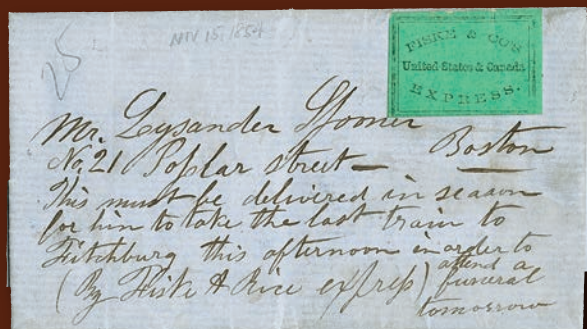 25
NOV 15, 1854
FISKE & CO'S
United States & Canada
EXPRESS.
Mr. Lysander Spooner
No, 21 Poplar street — Boston
This must be delivered in season
for him to take the last train to
Fitchburg this afternoon in order to
attend a
(By Fiske & Rice express) funeral
tomorrow